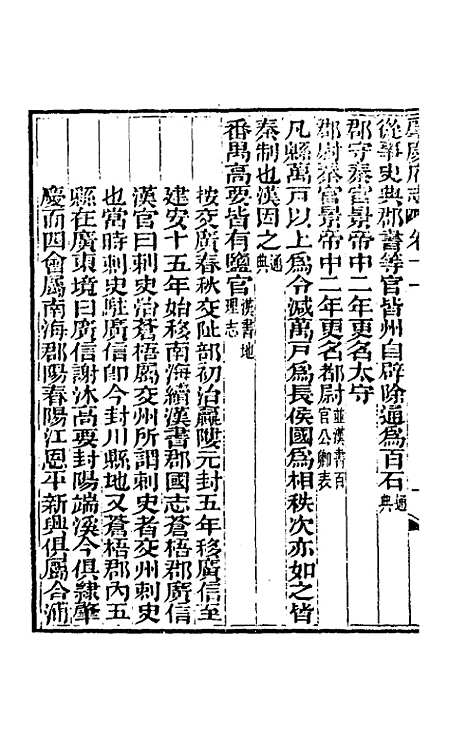 肇慶府志 卷十一
從事史典郡書等官皆州自辟除通爲百石通典
郡守秦官景帝中二年更名太守
郡尉秦官景帝中二年更名都尉並漢書百官公卿表
凡縣萬戸以上爲令減萬戸爲長侯國爲相秩次亦如之皆
秦制也漢因之通典
番禺高要皆有鹽官漢書地理志
按交廣春秋交趾部初治羸𨻻元封五年移廣信至
建安十五年始移南海續漢書郡國志蒼梧郡廣信
漢官曰刺史治蒼梧屬交州所謂刺史者交州刺史
也當時刺史駐廣信卽今封川縣地又蒼梧郡內五
縣在廣東境曰廣信謝沐高要封陽端溪今俱隸肇
慶而四會屬南海郡陽春陽江恩平新興俱屬合浦